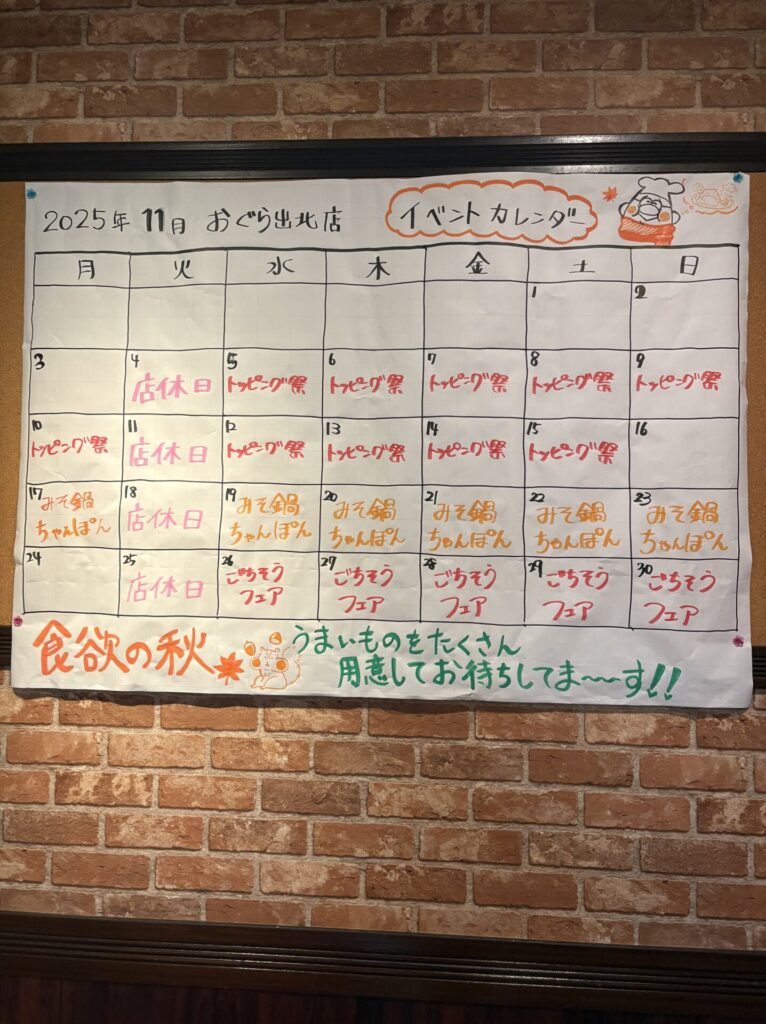 2025年 11月 おぐら出北店 イベントカレンダー
月 火 水 木 金 土 日
1 2
3 4 5 6 7 8 9
店休日 トッピング祭 トッピング祭 トッピング祭 トッピング祭 トッピング祭
10 11 12 13 14 15 16
トッピング祭 店休日 トッピング祭 トッピング祭 トッピング祭 トッピング祭
17 18 19 20 21 22 23
みそ鍋 店休日 みそ鍋 みそ鍋 みそ鍋 みそ鍋 みそ鍋
ちゃんぽん ちゃんぽん ちゃんぽん ちゃんぽん ちゃんぽん ちゃんぽん
24 25 26 27 28 29 30
店休日 ごちそう ごちそう ごちそう ごちそう ごちそう
フェア フェア フェア フェア フェア
食欲の秋 うまいものをたくさん
用意してお待ちしてま〜〜す!!